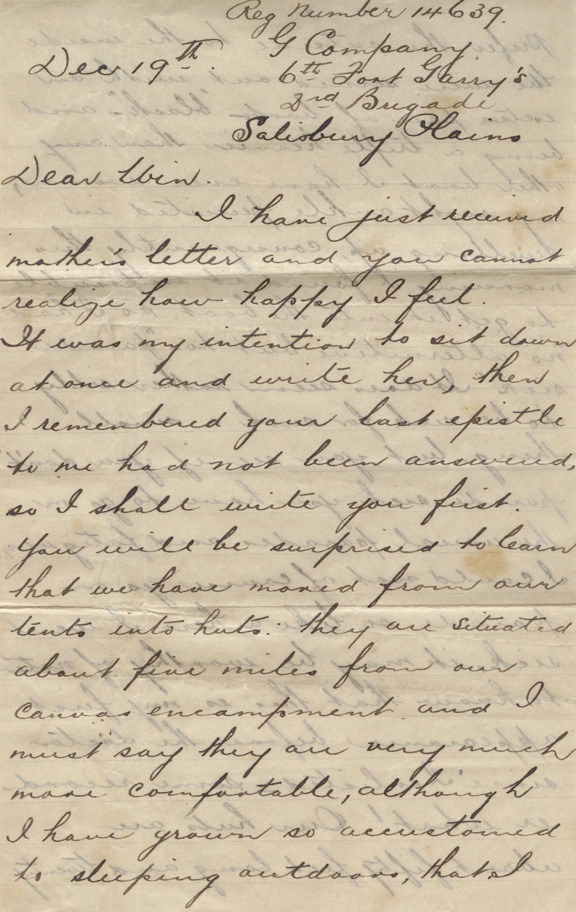 Reg Number 14639.
Dec 19th. G Company
6th Fort Garry's
2nd Brigade
Salisbury Plains
Dear Win.
I have just received
mother's letter and you cannot
realize how happy I feel.
It was my intention to sit down
at once and write her, then
I remembered your last epistle
to me had not been answered,
so I shall write you first.
You will be surprised to learn
that we have moved from our
tents into huts: they are situated
about five miles from our
canvas encampment and I
must say they are very much
more comfortable, although
I have grown so accustomed
to sleeping outdoors, that I